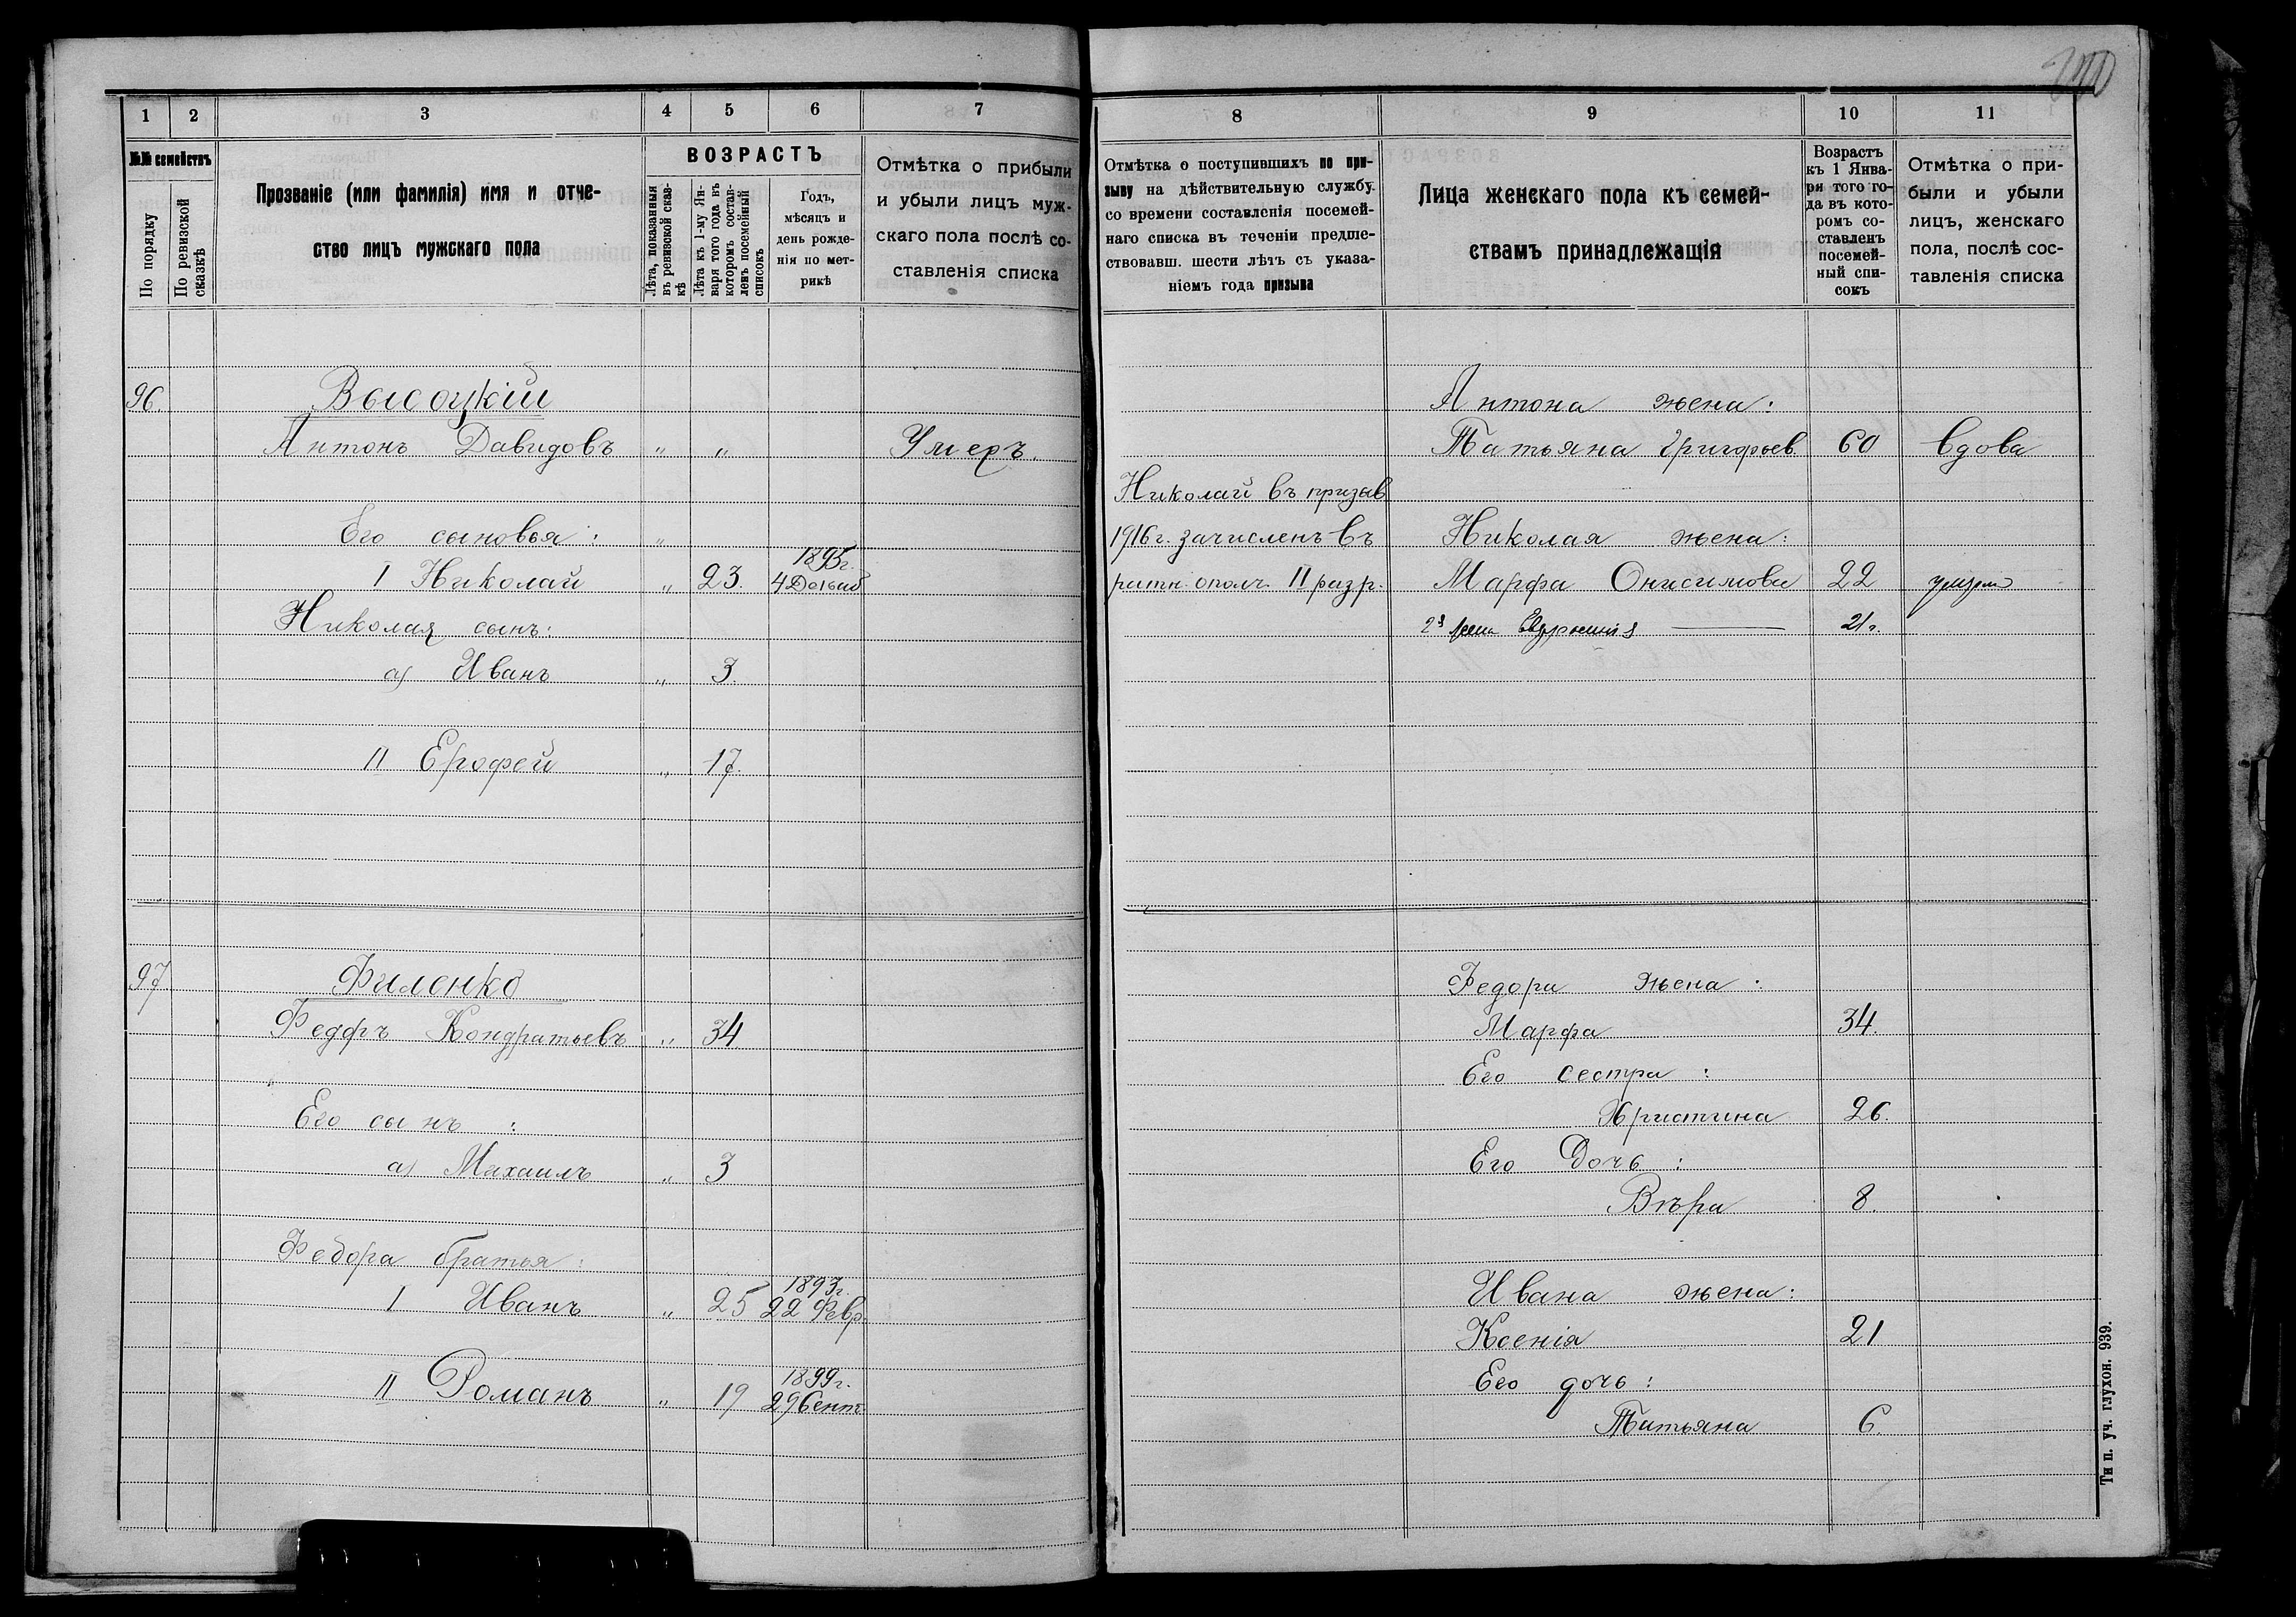 1 2 3 4 5 6 7
№№ семействъ
По порядку
По ревизской сказкѣ
Прозваніе (или фамилія) имя и отче-
ство лицъ мужскаго пола
ВОЗРАСТЪ
Лѣта, показанныя въ ревизской сказ-кѣ
Лѣта къ 1-му Ян-варя того года въ котором состав-ленъ посемейный списокъ
Годъ,
мѣсяцъ и
день рожде-
нія по мет-
рикѣ
Отмѣтка о прибыли
и убыли лицъ муж-
скаго пола послѣ со-
ставленія списка
96. Высоцкій
Антонъ Давидовъ „ „ Умеръ.
Его сыновья: „
1895г.
I Николай „ 23. 4 Декаб
Николая сынъ:
а) Иванъ „ 3.
II Ерофей „ 17.
97 Филенко
Федоръ Кондратьевъ „ 34
Его сынъ:
а) Михаилъ „ 3
Федора братья:
1893г.
I Иванъ „ 25 22 Февр.
1899г.
II Романъ „ 19 29 Сент.
8 9 10 11
Отмѣтка о поступившихъ по при-
зыву на дѣйствительную службу
со времени составленія посемей-
наго списка въ теченіи предше-
ствовавш. шести лѣтъ съ указа-
ніемъ года призыва
Лица женскаго пола къ семей-
ствамъ принадлежащія
Возрастъ
къ 1 Янва-
ря того го-
да въ кото-
ромъ со-
ставленъ
посемей-
ный спи-
сокъ
Отмѣтка о при-
были и убыли
лицъ, женскаго
пола, послѣ сос-
тавленія списка
Антона жена:
Татьяна Григорьев. 60 вдова
Николай въ призыв
1916г. зачисленъ въ Николая жена:
ратн. ополч. II разр. Марфа Онисимова 22
2я жена 21г.
Федора жена:
Марфа 34.
Его сестра:
Христина 26.
Его дочь:
Вѣра 8.
Ивана жена:
Ксенія 21
Его дочь:
Татьяна 6.
Тип. уч. глухон. 939.